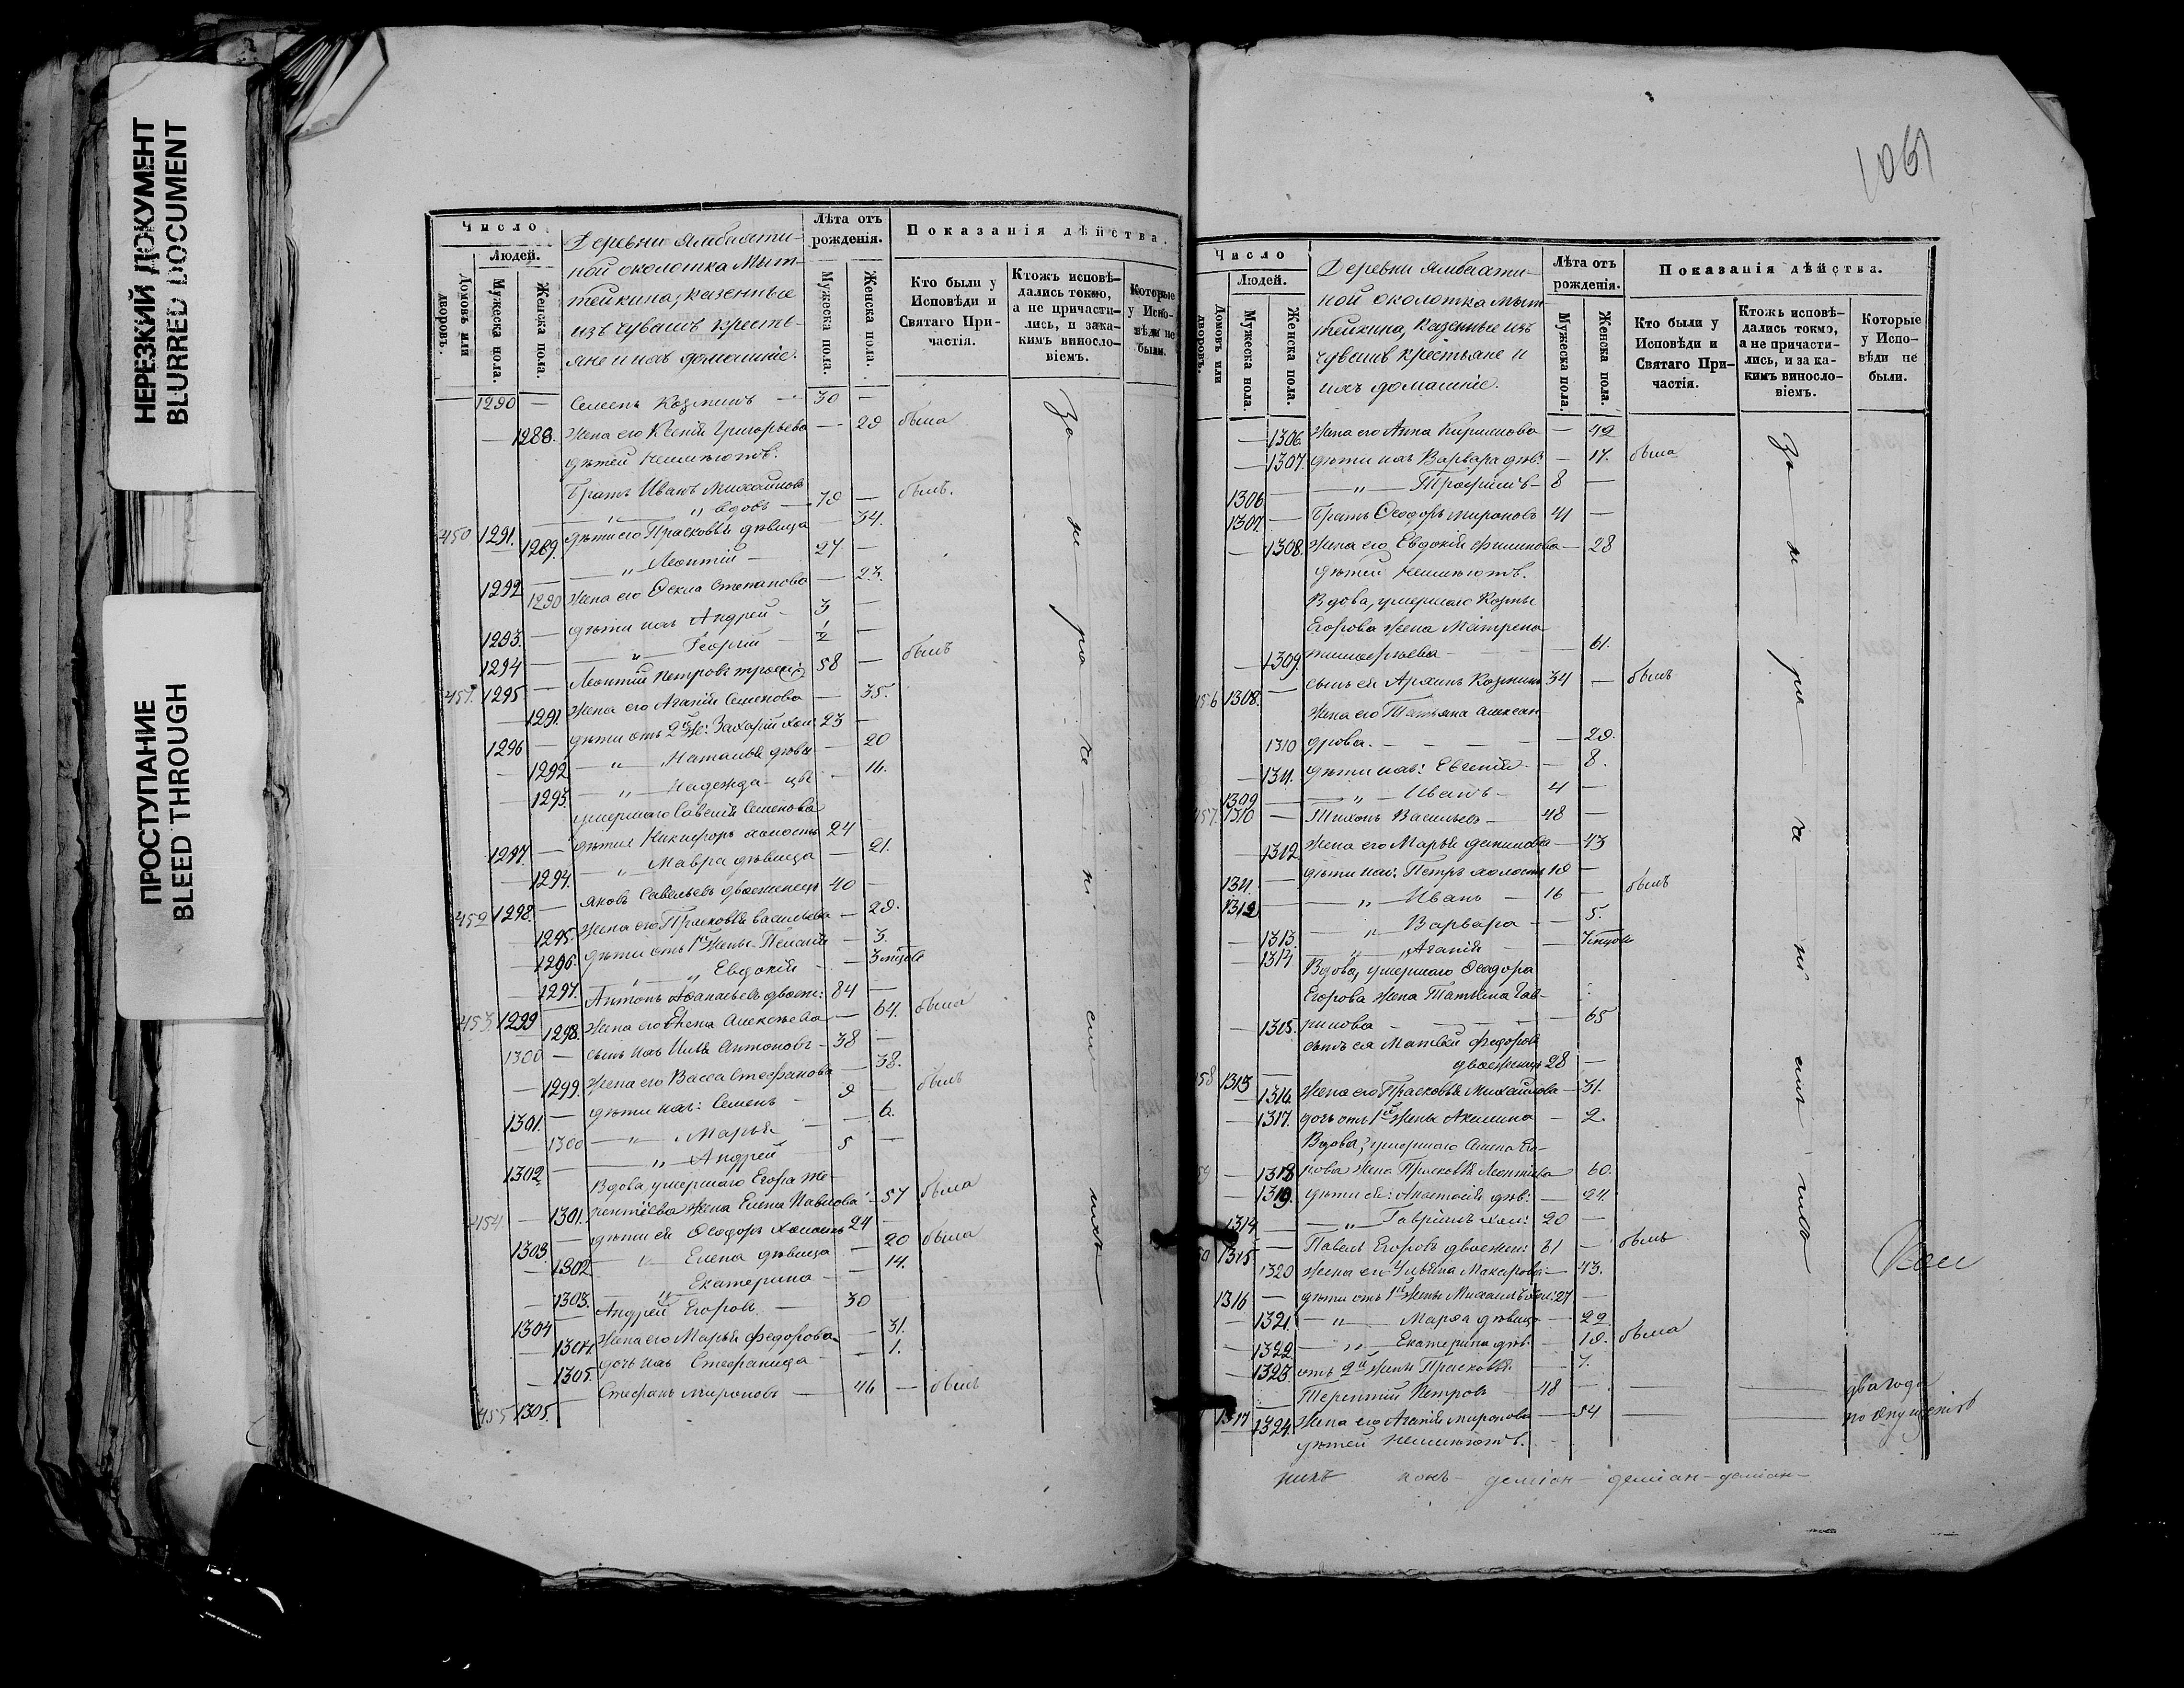 НЕРЕЗКИЙ ДОКУМЕНТ
BLURRED DOCUMENT
ПРОСТУПАНИЕ
BLEED THROUGH
Число
Людей.
Домовъ или дворовъ.
Мужеска пола.
Женска пола.
Деревни Ямбахти-
ной околотка Мыт-
тейкина, казенные
изъ чувашъ кресть-
яне и ихъ домашніе.
Лѣта отъ рожденія.
Мужеска пола.
Женска пола.
Показанія дѣйства.
Кто были у Исповѣди и Святаго При-частія.
Ктожъ исповѣ-дались токмо, а не причасти-лись, и зака-кимъ винословіемъ.
Которые у Испо-вѣди не были.
1290 — Семенъ Козминъ — 30 —
— 1288. Жена его Ксенія Григорьева — 29 была
дѣтей неимѣютъ.
Братъ Иванъ Михайловъ
„ вдовъ — 79 — былъ.
450 1291. дѣти его Прасковья дѣвица 34.
1289. „ Леонтій — 27 —
1292 — 1290 Жена его Ѳекла Степанова — 23.
1293. — дѣти ихъ Андрей — 3 —
1294 — „ Георгій — ½ —
451. 1295 — Леонтій Петровъ 58 — былъ
— 1291. Жена его Агапія Семенова — 35.
1296 — дѣти отъ 2й Ж: Захарій хол: 23 —
— 1292 „ Наталья дѣви — 20
— 1293. „ Надежда — цы — 16.
умершаго Савелія Семенова
1297. — дѣтия Никифоръ холостъ 24
— 1294. „ Мавра дѣвица — 21.
452 1298. — Яковъ Савельевъ двоеженецъ 40 —
— 1295. Жена его Прасковья Васильева — 29.
— 1296. дѣти отъ 1й Жены Пелагія — 3.
— 1297. „ Евдокія — 3 мѣсов
453. 1299 — Антонъ Аѳанасьевъ двоеж: 84 —
— 1298. Жена его Елена Алексѣева — 64. была
1300 — сынъ ихъ Илья Антоновъ — 38 —
— 1299. Жена его Васса Стефанова — 38.
1301. — дѣти ихъ: Семенъ — 9 — былъ
— 1300 „ Марья — 6.
1302 — „ Андрей 5 —
Вдова, умершаго Егора Те-
454 — 1301. рентіева Жена Елена Павлова — 57 была
1303. — дѣти ея Ѳеодоръ холостъ 24 —
— 1302 „ Елена дѣвица — 20 была
— 1303. „ Екатерина — 14.
1304 — Андрей Егоровъ — 30
— 1304. Жена его Марья Федорова — 31.
— 1305. дочь ихъ Стефанида — 1.
455 1305. Стефанъ Мироновъ — 46 — былъ
За не ра че ні емъ
1061
Число
Людей.
Домовъ или дворовъ.
Мужеска пола.
Женска пола.
Деревни Ямбахти-
ной околотка Мыт
тейкина, казенные изъ
чувашъ крестьяне и
ихъ домашніе.
Лѣта отъ рожденія.
Мужеска пола.
Женска пола.
Показанія дѣйства.
Кто были у Исповѣди и Святаго При-частія.
Ктожъ исповѣ-дались токмо, а не причасти-лись, и за ка-кимъ винословіемъ.
Которые у Испо-вѣди не были.
— 1306. Жена его Анна Кирилова — 42
— 1307. дѣти ихъ Варвара дѣв: — 17. была
1306 — „ Трофимъ — 8 —
1307. — Братъ Ѳеодоръ Мироновъ 41 —
— 1308. Жена его Евдокія Филипова — 28
дѣтей неимѣютъ.
Вдова, умершаго Козмы
Егорова Жена Матрена
— 1309. Тимофѣева — 61.
456 1308. — сынъ ея Архипъ Козминъ 34 — былъ
Жена его Татьяна Алексан
1310 дрова. — 29.
— 1311. дѣти ихъ: Евгенія — 8.
1309 — „ Иванъ — 4 —
457. 1310 — Тихонъ Васильевъ — 48 —
— 1312 Жена его Марья Данилова — 43
1311. — дѣти ихъ: Петръ холостъ 19 —
1312 — „ Иванъ — 16 — былъ
— 1313. „ Варвара — 5.
— 1314 „ Агапія —
Вдова, умершаго Ѳеодора
Егорова Жена Татьяна Гав-
— 1315. рилова — 65
сынъ ея Матвѣй Федоровъ
458 1313 — двоеженецъ 28 —
— 1316. Жена его Прасковья Михайлова — 31.
— 1317. дочь отъ 1й Жены Акилина — 2.
Вдова, умершаго Его-
59 — 1318 рова Жена Прасковья Леонтіева 60.
— 1319. дѣти ея: Анастасія дѣв: — 24.
1314 — „ Гавріилъ хол: 20 —
60 1315 — Павелъ Егоровъ двоежен: 61 — былъ
1320 Жена его Ульяна Макарова — 43.
1316 — дѣти отъ 1й Жены Михаилъ 27 —
— 1321. „ Марѳа дѣвица — 22.
— 1322. „ Екатерина дѣв. — 19. была
— 1323 отъ 2й Жены Прасковья — 7.
1317 Терентій Петровъ — 48 — два года
— 1324. Жена его Агапія Миронова — 54 — по опущенію
дѣтей неимѣютъ.
За не ра че ні емъ